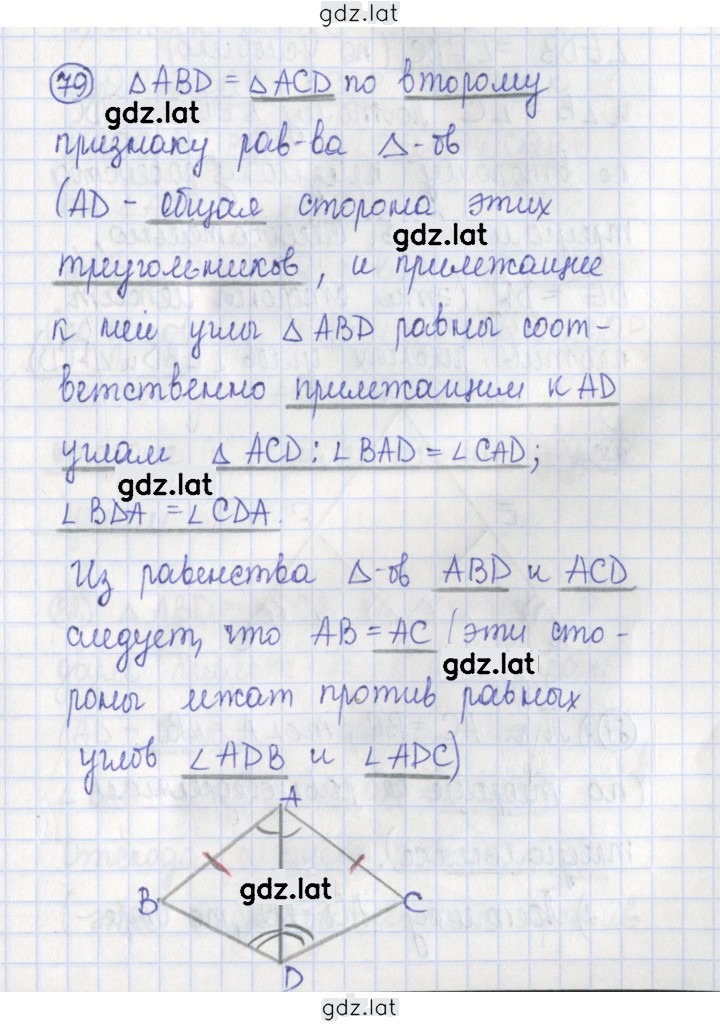 gdz.lat
79 ΔABD = ΔACD по второму
gdz.lat
признаку рав-ва Δ-ов
(AD - общая сторона этих
gdz.lat
треугольников, и прилежащие
к ней углы Δ ABD равны соот-
ветственно прилежащим к AD
углам Δ ACD: ∠BAD = ∠CAD;
gdz.lat
∠BDA = ∠CDA.
Из равенства Δ-ов ABD и ACD
следует, что AB = AC (эти сто-
gdz.lat
роны лежат против равных
углов ∠ADB и ∠ADC)
A
B gdz.lat C
D
gdz.lat